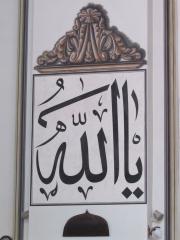 يا الله